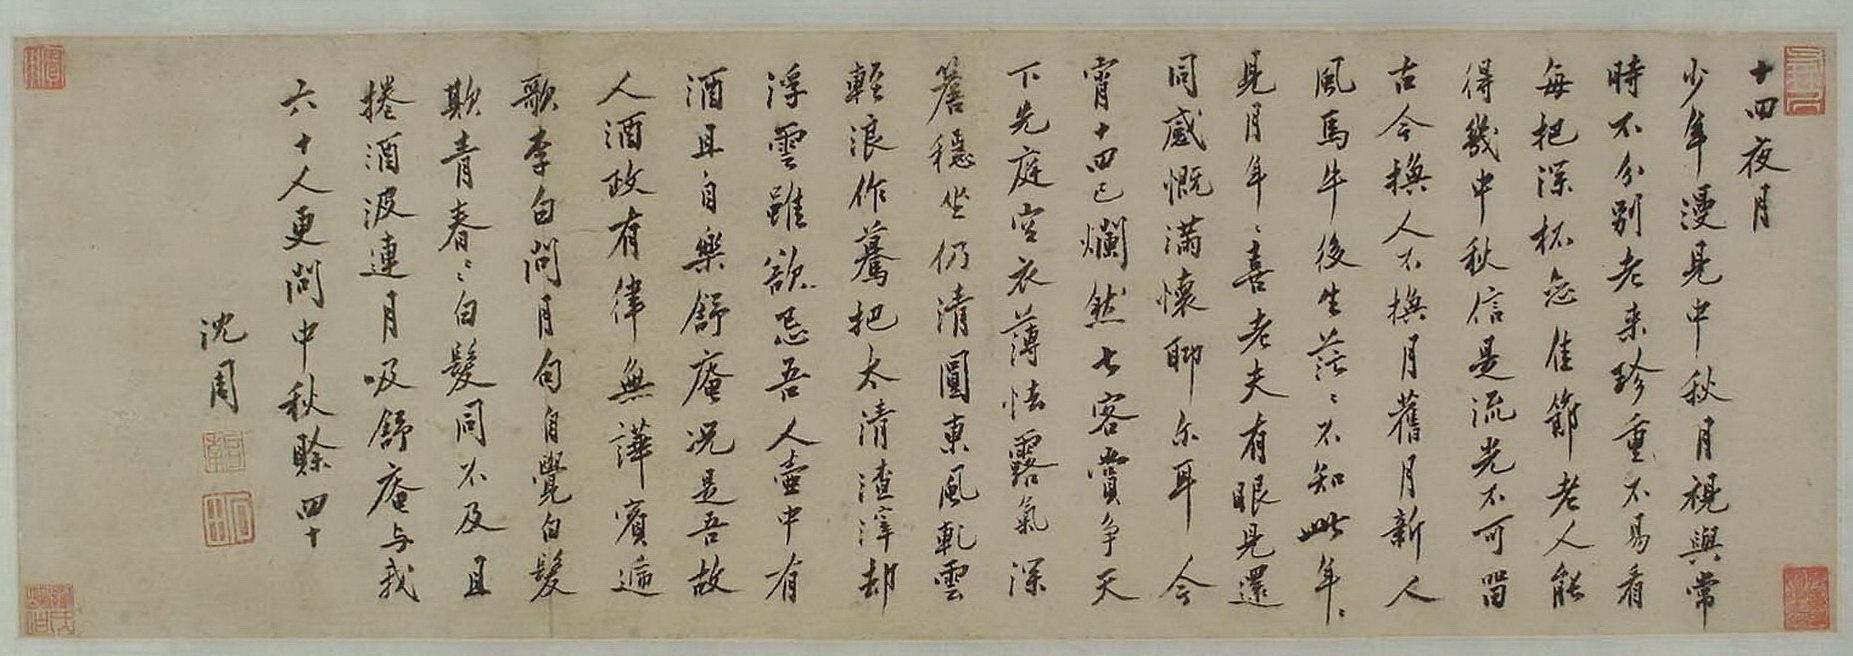 十四夜月
少年漫見中秋月視與常
時不分別老来珍重不易看
每把深杯念佳節老人能
得幾中秋信是流光不可留
古今換人不換月舊月新人
風馬牛後生茫〻不知此年〻
見月年〻喜老夫有眼見還
同感慨滿懷聊尔耳今
宵十四已爛然七客賞爭天
下先庭空衣薄怯露氣深
簷穩坐仍清圓東風軋雲
輕浪作驀把太清渣滓却
浮雲雖欲忌吾人壺中有
酒且自樂舒庵況是吾故
人酒政有律無譁賓遞
歌李白問月句自覺白髮
欺青春〻〻白髮同不及且
捲酒波連月吸舒庵与我
六十人更問中秋賒四十
沈周